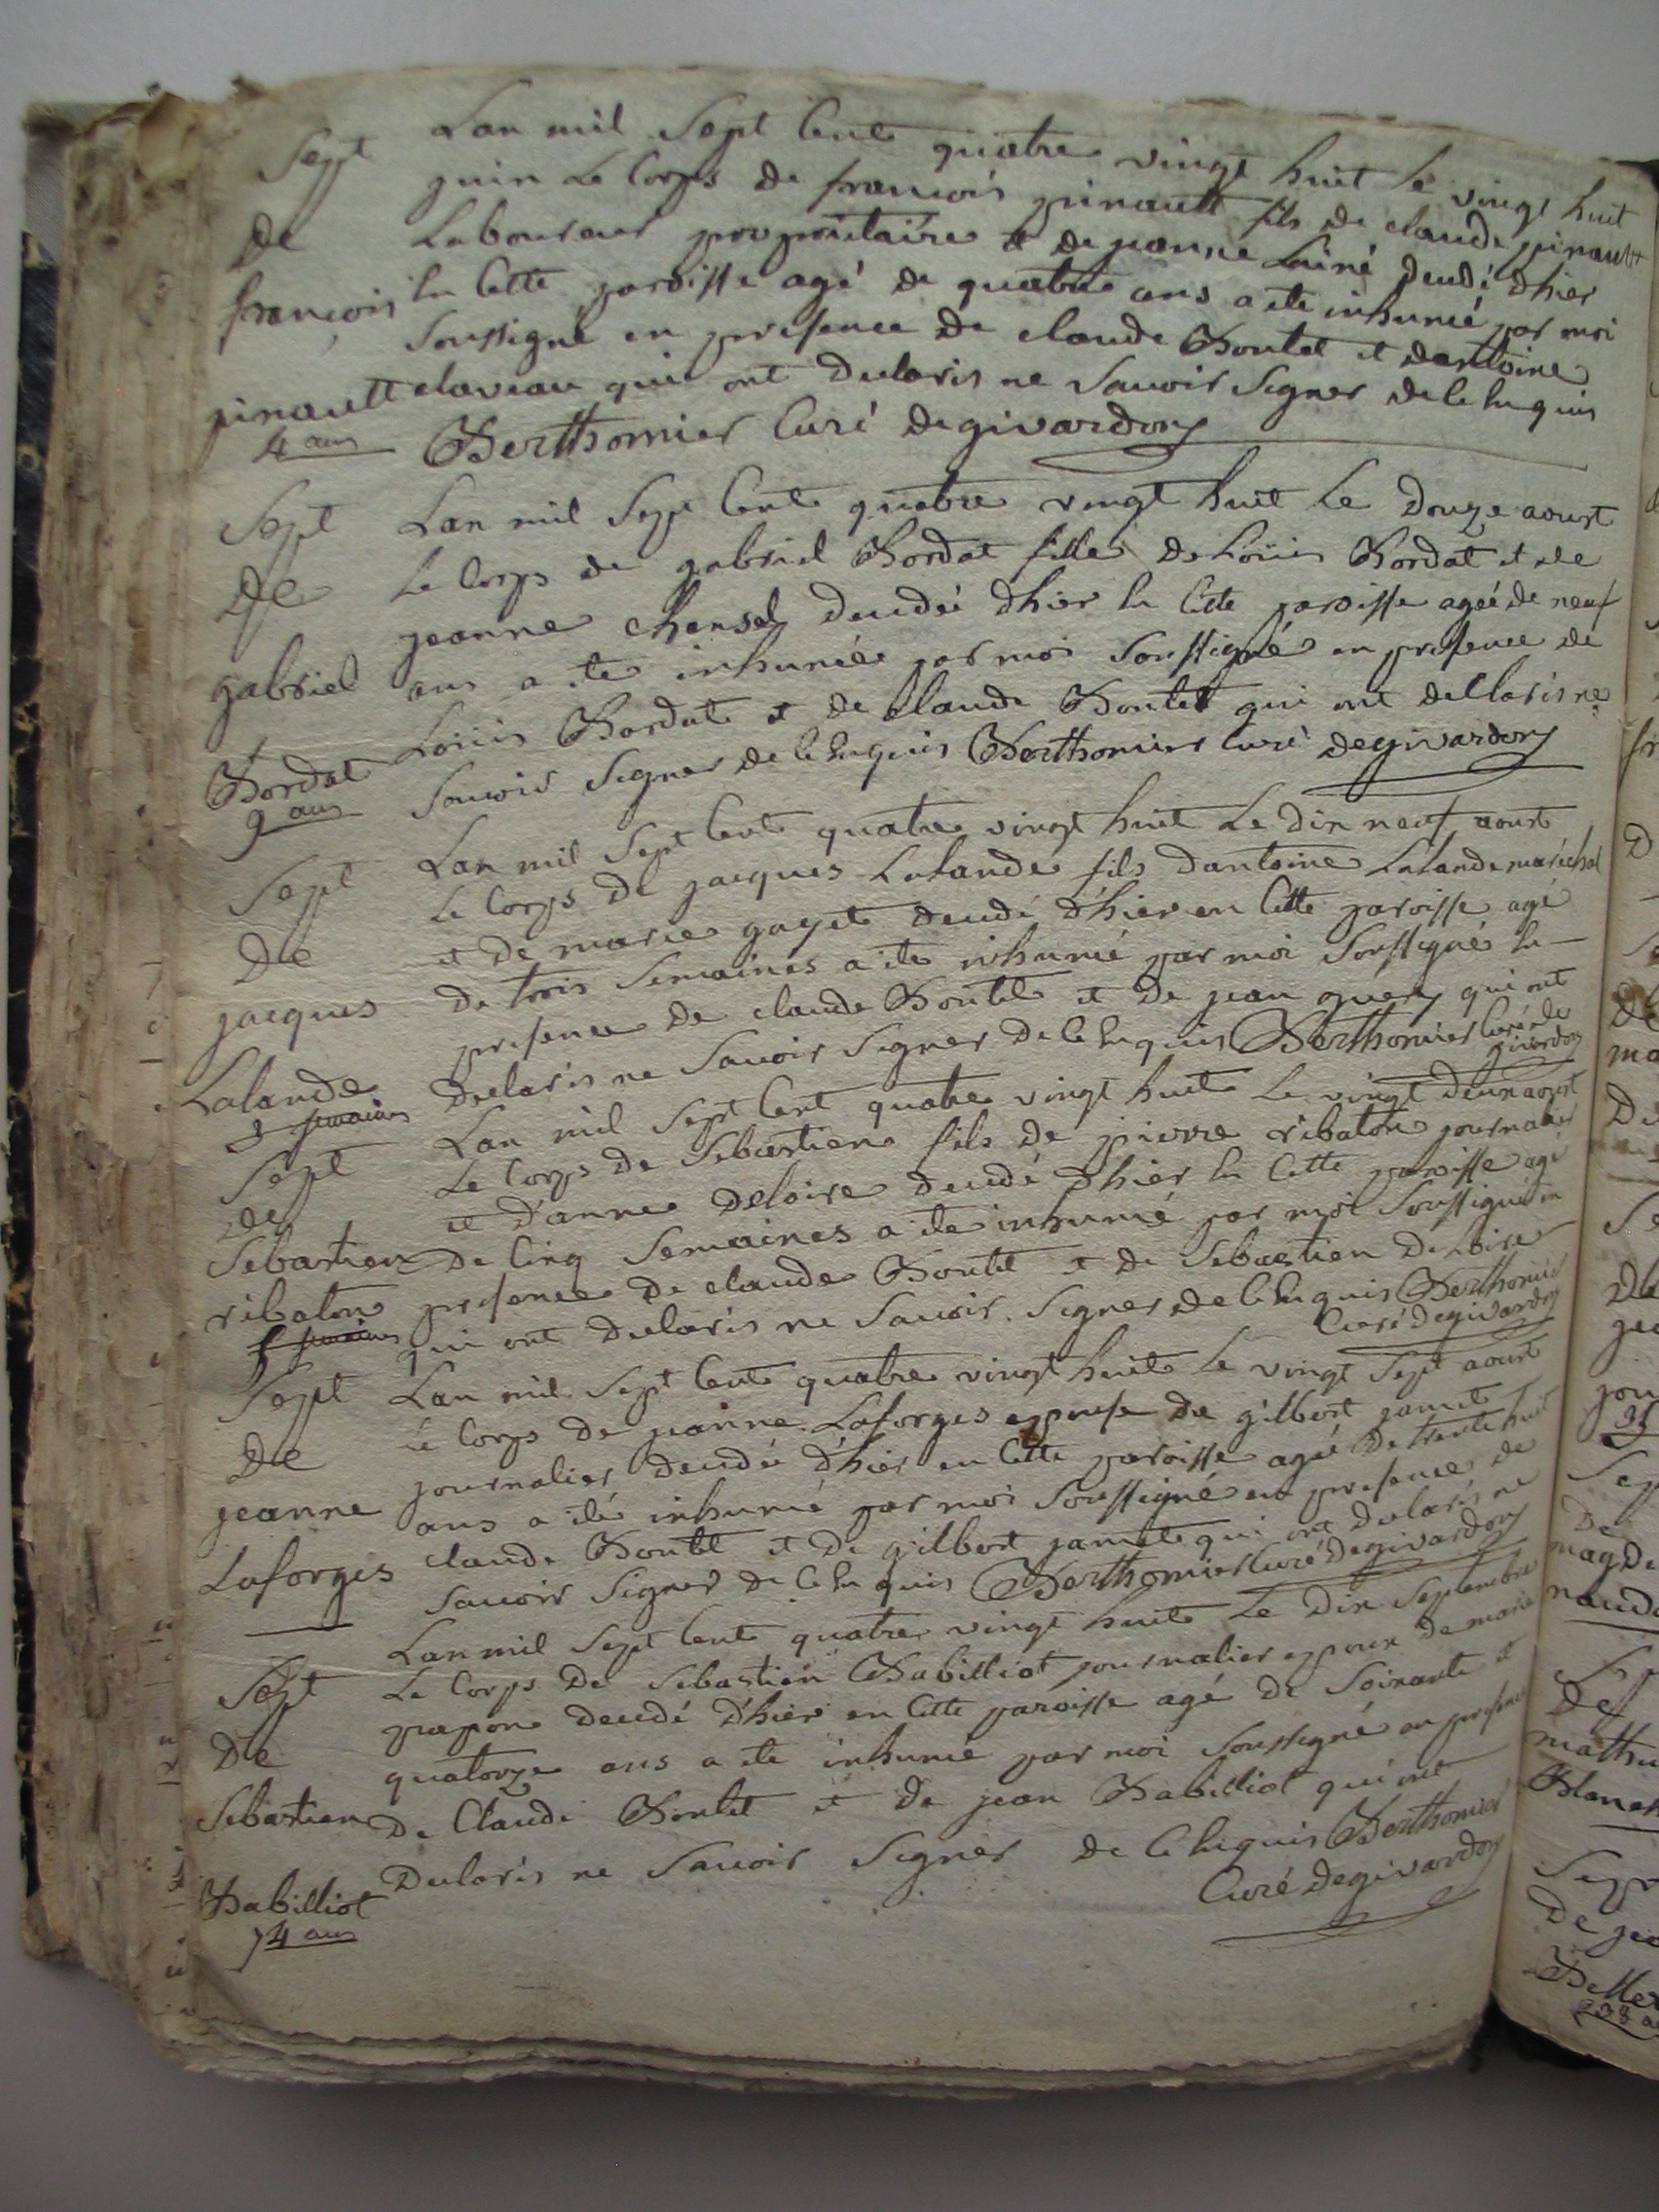 Sept
de
françois
pinault
4 ans
Lan mil Sept Cent quatre vingt huit le vingt huit
juin Le Corps de françois pinault fils de claude pinault
Laboureur propriétaire et de jeanne Lainé decedé dhier
En Cette paroisse agé de quatre ans a ete inhumé par moi
Soussigné en presence de claude Boutet et dantoine
claveau qui ont declarés ne Savoir Signer de ce Enquis
Berthomier Curé degivardon
Sept
de
gabriel
Bordat
9 ans
Lan mil Sept Cent quatre vingt huit Le Douze aoust
Le Corps de gabriel Bordat fille de Loüis Bordat et de
jeanne decedée dhier En Cette paroisse ageé de neuf
ans a ete inhumée par moi Soussigné en presence de
Loüis Bordat et de Claude Boutet qui ont declarés ne
Savoir Signer de ce Enquis Berthomier Curé degivardon
Sept
de
jacques
Lalande
3 semaines
Lan mil Sept Cent quatre vingt huit Le Dix neuf aoust
Le Corps de jacques Lalande fils dantoine Lalande maréchal
et de marie gayet decedé d'hier en Cette paroisse agé
de trois Semaines a ete inhumé par moi Soussigné En
presence de claude Boutet et de jean qui ont
declarés ne Savoir Signer de ce Enquis Berthomier Curé de
givardon
Sept
de
Sebastien
ribaton
5 semaines
Lan mil Sept Cent quatre vingt huit Le vingt deux aoust
Le Corps de Sebastien fils de pierre ribaton journalier
et d'anne Deloire decedé dhier En Cette paroisse agé
de Cinq Semaines a ete inhumé par moi Soussigné en
presence de claude Boutet et de Sebastien Deloire
qui ont declarés ne Savoir Signer de ce Enquis Berthomier
Curé degivardon
Sept
de
jeanne
Laforges
Lan mil Sept Cent quatre vingt huit le vingt Sept aoust
Le Corps de jeanne Laforges epouse de gilbert jamet
journalier decedée d'hier en Cette paroisse ageé de trente huit
ans a été inhumé par moi Soussigné en presence de
claude Boutet et de gilbert jamet qui ont declarés ne
Savoir Signer de ce Enquis Berthomier Curé degivardon
Sept
de
Sebastien
Babilliot
74 ans
Lan mil Sept Cent quatre vingt huit Le Dix Septembre
Le Corps de Sebastien Babilliot journalier epoux de marie
papon decedé d'hier en Cette paroisse agé de Soixante et
quatorze ans a ete inhumé par moi Soussigné en presence
de Claude Boutet et de jean Babilliot qui ont
Declarés ne Savoir Signer de ce Enquis Berthomier
Curé degivardon